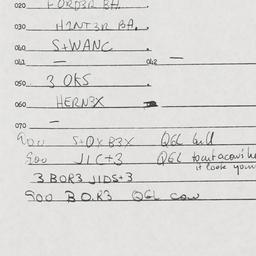 020 FORD3R BA
030 H2NT3R BA.
040 S+WANC
041 — 042 —
050 3 OKS
060 HERN3X
070 —
900 S+OXB3X Q6L bull
900 JIC+3 Q6L to cut a cow's
it look your
3 BOR3 JIDS+3
900 BOR3 Q6L cow